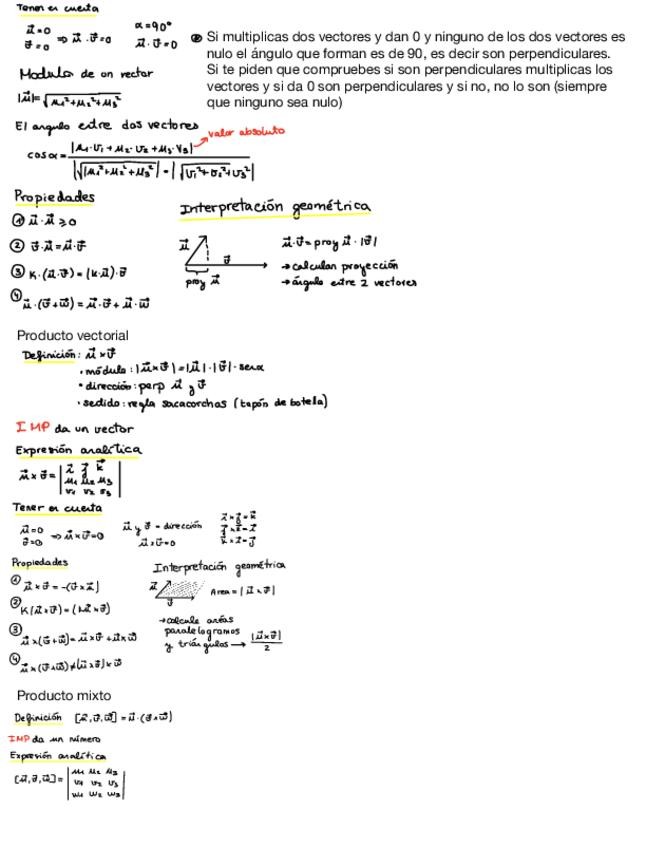 Tener en cuenta
μ⃗=0
v⃗=0 ⇒ μ⃗·v⃗=0
α=90°
μ⃗·v⃗=0
Si multiplicas dos vectores y dan 0 y ninguno de los dos vectores es
nulo el ángulo que forman es de 90, es decir son perpendiculares.
Si te piden que compruebes si son perpendiculares multiplicas los
vectores y si da 0 son perpendiculares y si no, no lo son (siempre
que ninguno sea nulo)
Modulo de un vector
|μ⃗|=√μ₁²+μ₂²+μ₃²
El angulo entre dos vectores
valor absoluto
cosα=|μ₁·v₁+μ₂·v₂+μ₃·v₃| / |√μ₁²+μ₂²+μ₃²|·|√v₁²+v₂²+v₃²|
Propiedades
① μ⃗·μ⃗ ≥0
② v⃗·μ⃗=μ⃗·v⃗
③ K·(μ⃗·v⃗)=(k·μ⃗)·v⃗
④ μ⃗·(v⃗+w⃗)=μ⃗·v⃗+μ⃗·w⃗
Interpretación geométrica
μ⃗
v⃗
proy μ⃗
μ⃗·v⃗=proy μ⃗·|v⃗|
→calcular proyección
→ángulo entre 2 vectores
Producto vectorial
Definición: μ⃗×v⃗
·módulo:|μ⃗×v⃗|=|μ⃗|·|v⃗|·senα
·dirección:perp μ⃗ y v⃗
·sedido:regla sacacorchas (tapón de botella)
IMP da un vector
Expresión analítica
μ⃗×v⃗=| i⃗ j⃗ k⃗
μ₁ μ₂ μ₃
v₁ v₂ v₃ |
Tener en cuenta
μ⃗=0
v⃗=0 ⇒μ⃗×v⃗=0
μ⃗ y v⃗ = dirección
μ⃗×v⃗=0
i⃗×j⃗=k⃗
j⃗×k⃗=i⃗
k⃗×i⃗=j⃗
Propiedades
① μ⃗×v⃗=-(v⃗×μ⃗)
② K(μ⃗×v⃗)=(kμ⃗×v⃗)
③ μ⃗×(v⃗+w⃗)=μ⃗×v⃗+μ⃗×w⃗
④ μ⃗×(v⃗×w⃗)≠(μ⃗×v⃗)×w⃗
Interpretación geométrica
μ⃗
v⃗
Area=|μ⃗×v⃗|
→calcule areás
paralelogramos
y triángulos → |μ⃗×v⃗|/2
Producto mixto
Definición [μ⃗,v⃗,w⃗]=μ⃗·(v⃗×w⃗)
IMP da un número
Expresión analítica
[μ⃗,v⃗,w⃗]=| μ₁ μ₂ μ₃
v₁ v₂ v₃
w₁ w₂ w₃ |